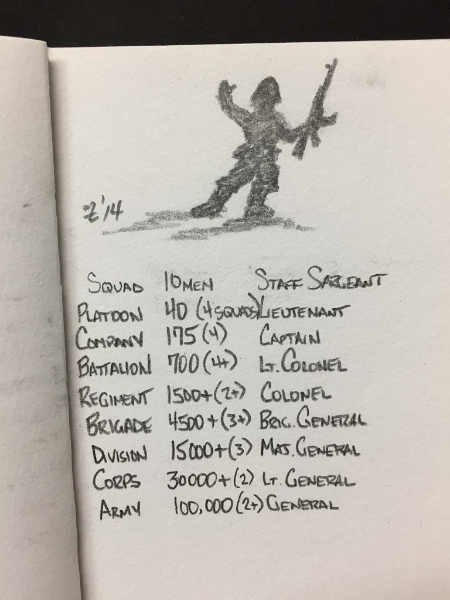 Z '14
Squad 10 men Staff Sargeant
Platoon 40 (4 squads) Lieutenant
Company 175 (4) Captain
Battalion 700 (4+) Lt. Colonel
Regiment 1500+ (2+) Colonel
Brigade 4500+ (3+) Brig. General
Division 15000+ (3) Maj. General
Corps 30000+ (2) Lt. General
Army 100,000 (2+) General